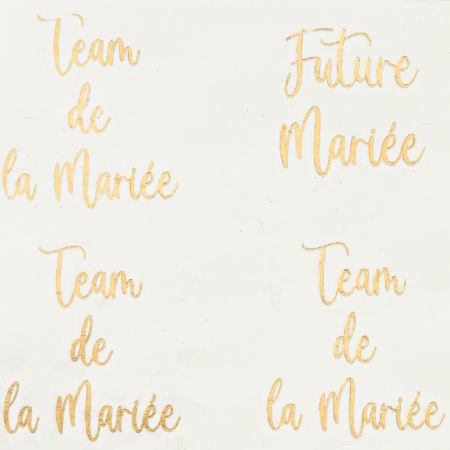 Team
de
la Mariée
Future
Mariée
Team
de
la Mariée
Team
de
la Mariée